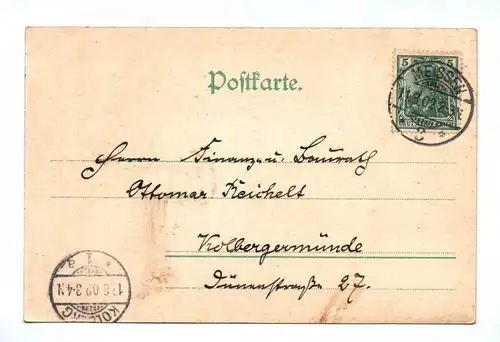 Postkarte.
5 5
MEISSEN
Herrn Finanz- u. Baurath
Ottomar Reichelt
Kolbergermünde
Dünenstraße 27.
* 1 a
17.6.02.3-4N
KOLBERG